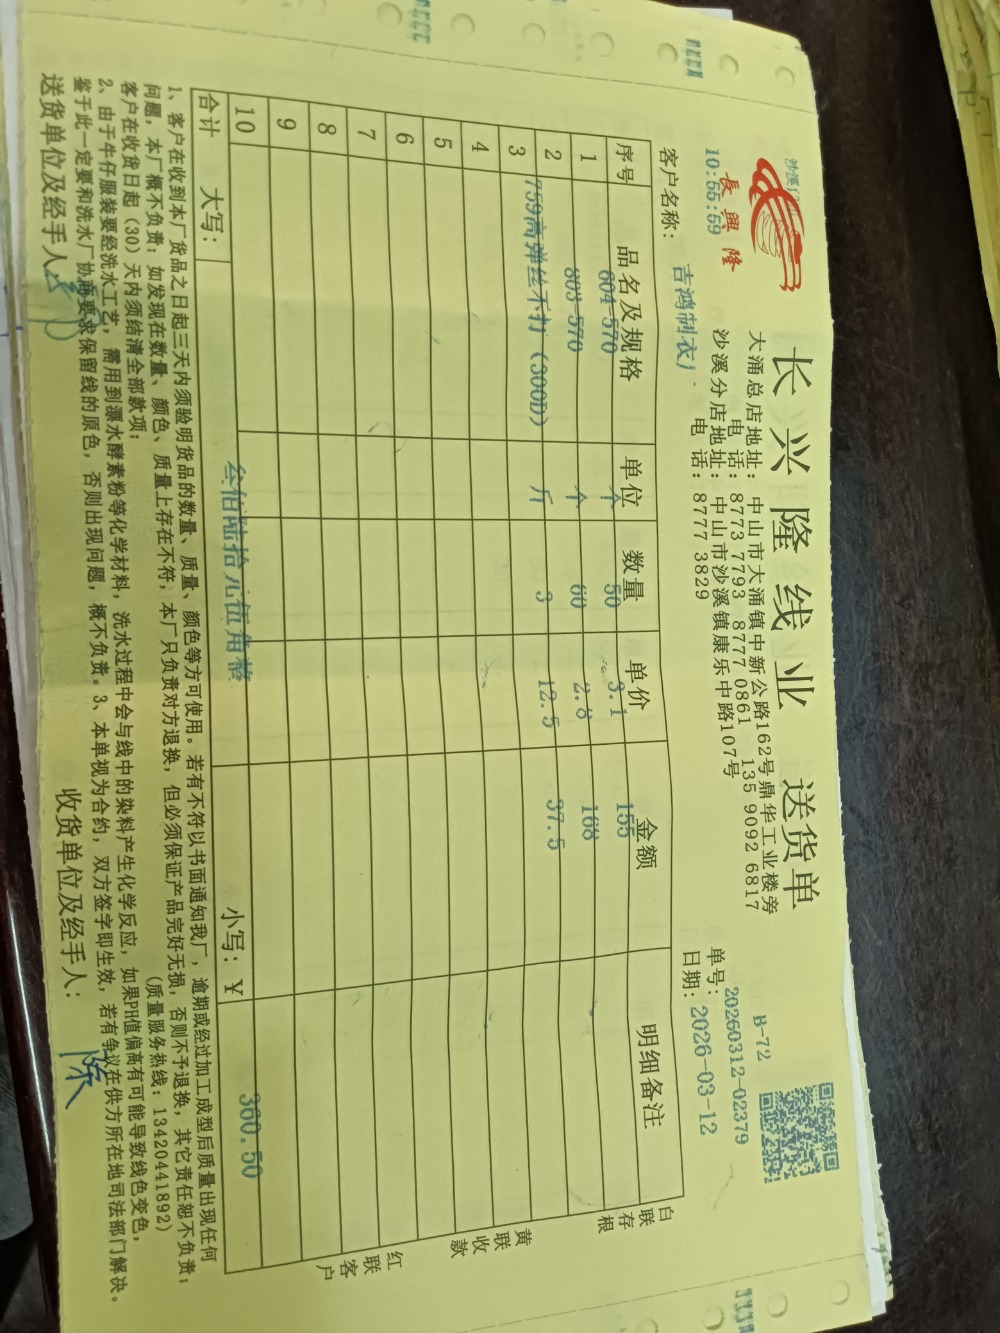 長興隆
10:55:59
长兴隆线业 送货单
大涌总店地址：中山市大涌镇中新公路162号鼎华工业楼旁
电 话：8773 7793 8777 0861 135 9092 6817
沙溪分店地址：中山市沙溪镇康乐中路107号
电 话：8777 3829
B-72
单号：20260312-02379
日期：2026-03-12
客户名称：吉鸿制衣厂
序号 品名及规格 单位 数量 单价 金额 明细备注
1 604-570 个 50 3.1 155
2 803-570 个 60 2.8 168
3 759高弹丝不打（300D） 斤 3 12.5 37.5
4
5
6
7
8
9
10
合计 大写：叁佰陆拾元伍角整 小写：￥ 360.50
白联存根
黄联收款
红联客户
1、客户在收到本厂货品之日起三天内须验明货品的数量、质量、颜色等方可使用。若有不符以书面通知我厂，逾期或经过加工成型后质量出现任何
问题，本厂概不负责；如发现在数量、颜色、质量上存在不符，本厂只负责对方退换，但必须保证产品完好无损，否则不予退换，其它责任恕不负责；
客户在收货日起（30）天内须结清全部款项；
（质量服务热线：13420441892）
2、由于牛仔服装要经洗水工艺，需用到漂水酵素粉等化学材料，洗水过程中会与线中的染料产生化学反应，如果PH值偏高有可能导致线色变色，
鉴于此一定要和洗水厂协商要求保留线的原色，否则出现问题，概不负责。3、本单视为合约，双方签字即生效，若有争议在供方所在地司法部门解决。
送货单位及经手人： 收货单位及经手人：陈